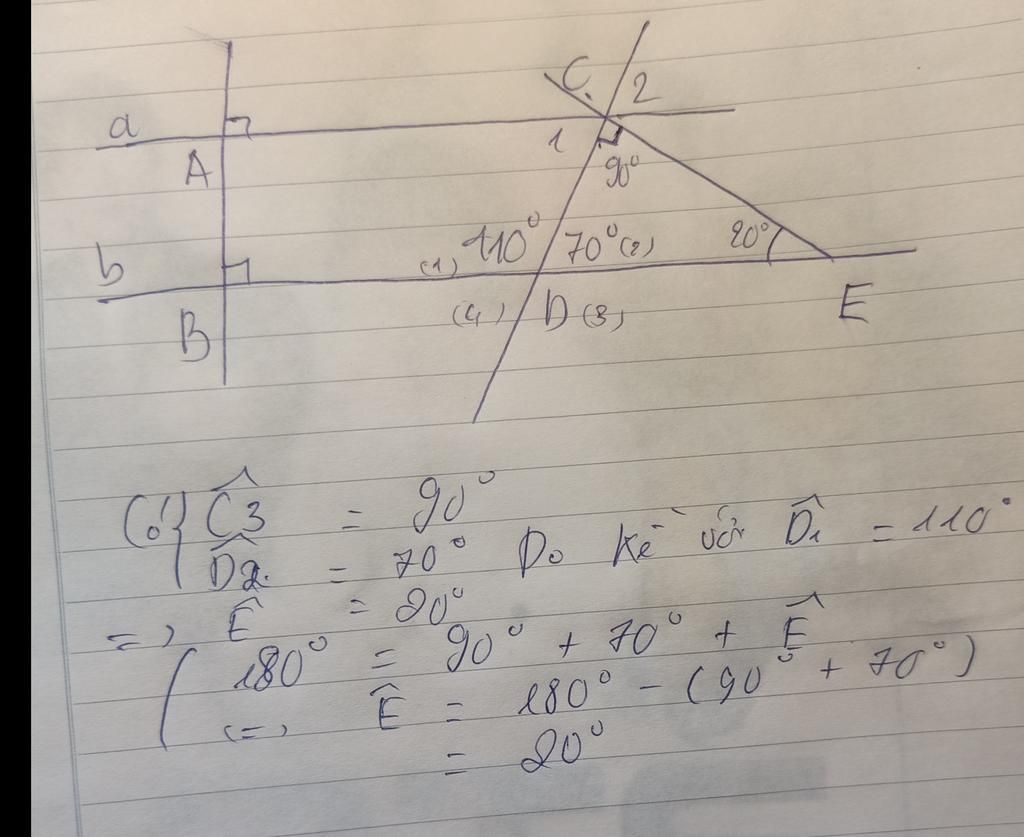 C 2
a
1
A
90°
b
(1) 110° 70° (2) 20°
(4) D (3)
E
B
Có { Ĉ3 = 90°
D̂2 = 70° Do kề với D̂1 = 110°
=> Ê = 20°
( 180° = 90° + 70° + Ê
<=> Ê = 180° - (90° + 70°)
= 20°